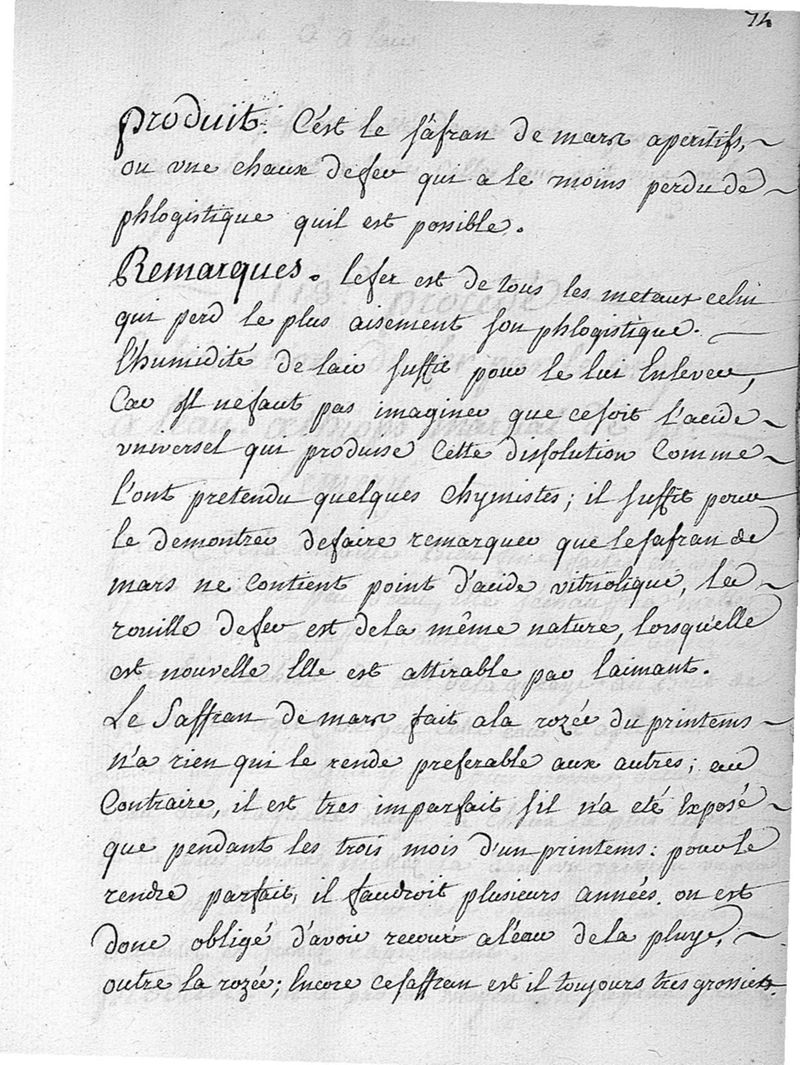 74
produit. C'est le safran de mars aperitifs,
ou vne chaux de fer qui a le moins perdu de
phlogistique quil est possible.
Remarques. le fer est de tous les metaux celui
qui perd le plus aisement son phlogistique.
l'humidité de lair suffit pour le lui Enlever,
Car Il ne faut pas imaginer que ce soit l'acide
vniversel qui produise Cette dissolution Comme
l'ont pretendu quelques Chymistes; il suffit pour
le demontrer de faire remarquer que le safran de
mars ne Contient point d'acide vitriolique, la
rouille de fer est de la même nature, lorsquelle
est nouvelle Elle est attirable par laimant.
Le Saffran de mars fait a la rozée du printems
n'a rien qui le rende preferable aux autres; au
Contraire, il est tres imparfait s'il n'a eté Exposé
que pendant les trois mois d'un printems: pour le
rendre parfait, il faudroit plusieurs années. on est
donc obligé d'avoir recour a l'éau de la pluye,
outre la rozée; Encore ce saffran est il toujours tres grossier.